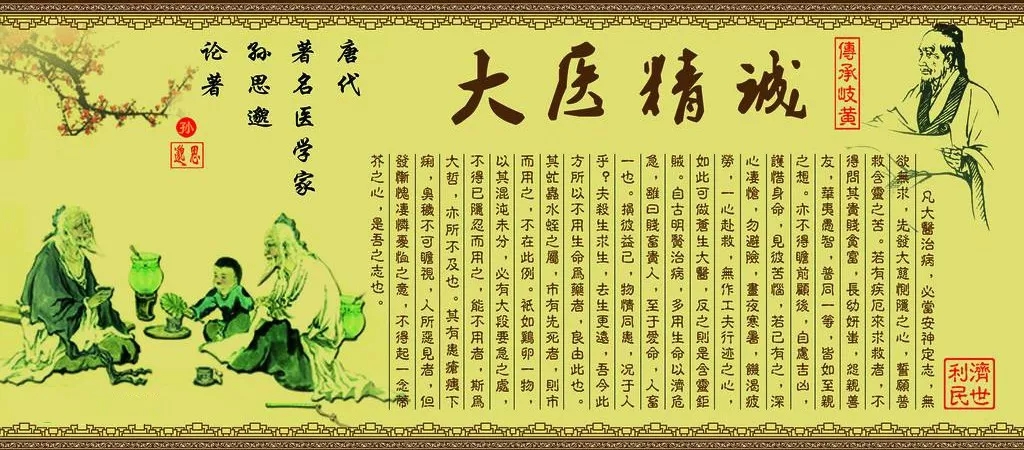 大医精诚
傳承岐黃
唐代
著名医学家
孙思邈
论著
孙
思邈
凡大醫治病，必當安神定志，無
欲無求，先發大慈惻隱之心，誓願普
救含靈之苦。若有疾厄來求救者，不
得問其貴賤貧富，長幼妍蚩，怨親善
友，華夷愚智，普同一等，皆如至親
之想。亦不得瞻前顧後，自慮吉凶，
護惜身命，見彼苦惱，若己有之，深
心凄愴，勿避險，晝夜寒暑，饑渴疲
勞，一心赴救，無作工夫行迹之心，
如此可做蒼生大醫，反之則是含靈鉅
賊。自古明賢治病，多用生命以濟危
急，雖曰賤畜貴人，至于愛命，人畜
一也。損彼益己，物情同患，況于人
乎？夫殺生求生，去生更遠，吾今此
方所以不用生命爲藥者，良由此也。
其虻蟲水蛭之屬，市有先死者，則市
而用之，不在此例。衹如鷄卵一物，
以其混沌未分，必有大段要急之處，
不得已隱忍而用之，能不用者，斯爲
大哲，亦所不及也。其有患瘡痍下
痢，臭穢不可瞻視，人所惡見者，但
發慚愧凄憐憂恤之意，不得起一念蒂
芥之心，是吾之志也。
濟世
利民